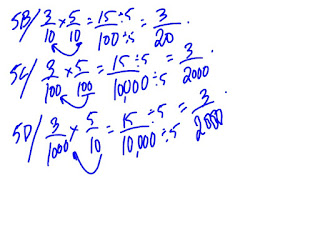 5B/ 3/10 × 5/10 = 15÷5/100÷5 = 3/20.
5C/ 3/100 × 5/100 = 15÷5/10,000÷5 = 3/2000.
5D/ 3/1000 × 5/10 = 15÷5/10,000÷5 = 3/2000.